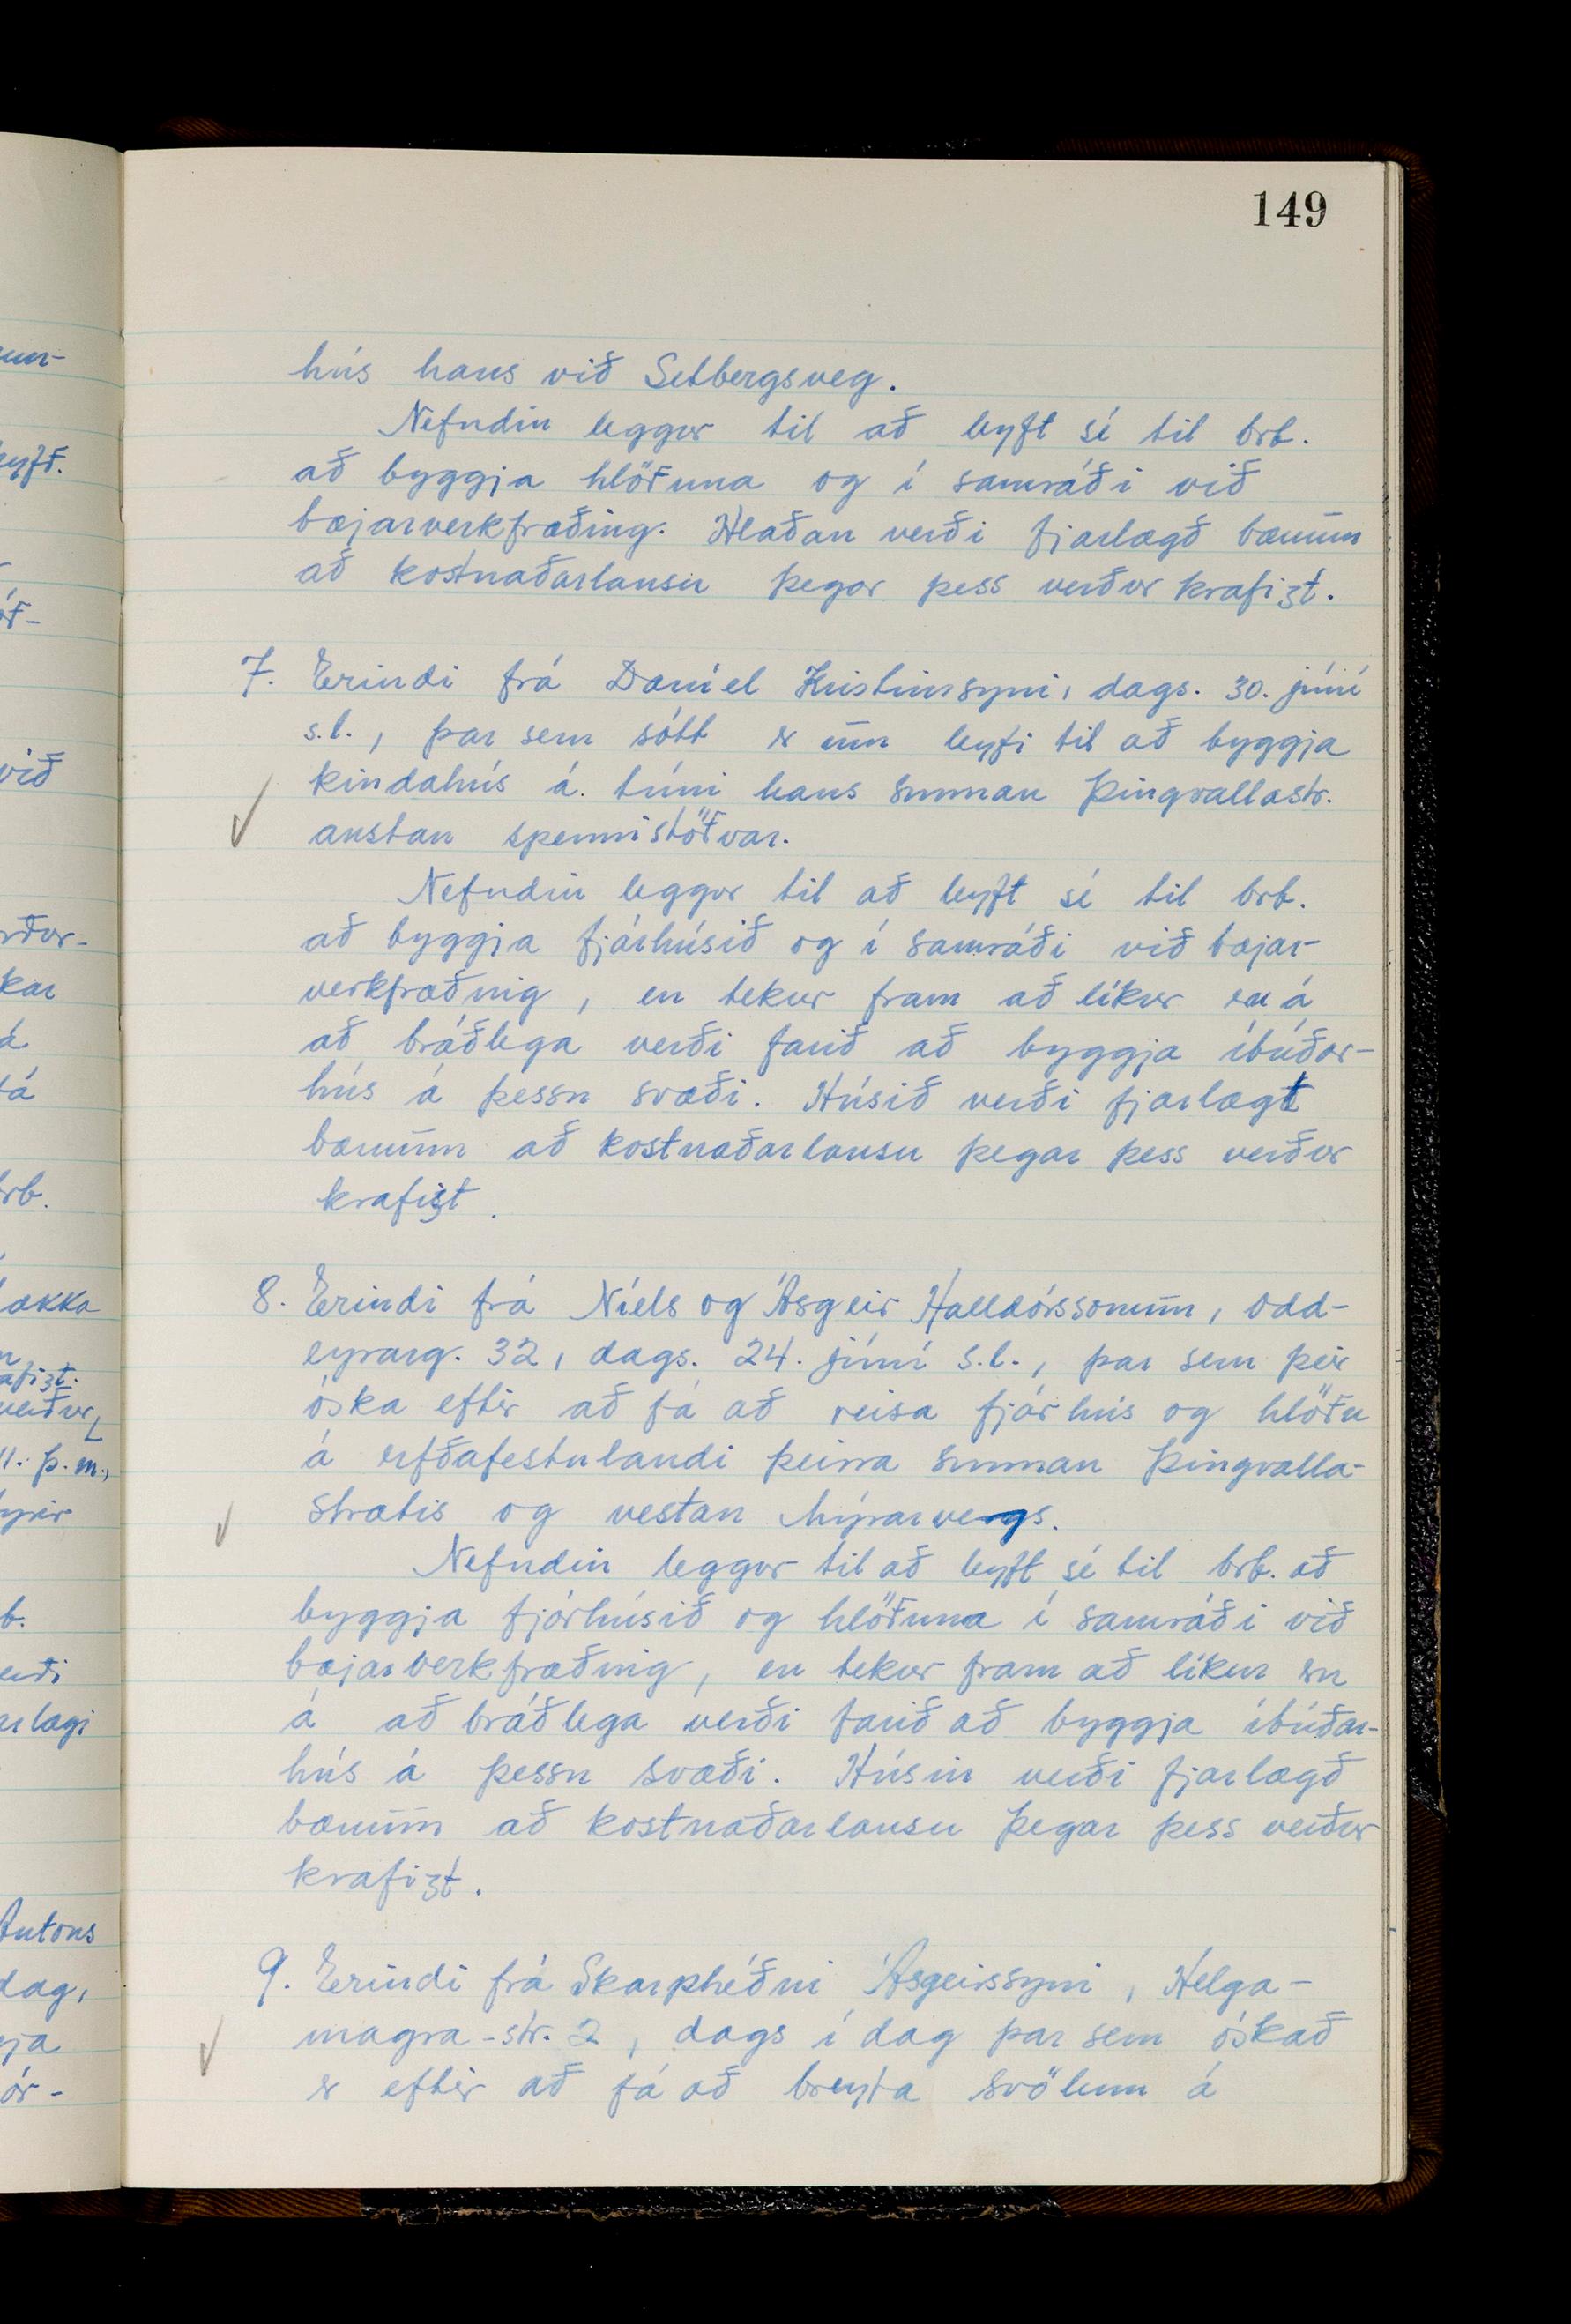 149
hús hans við Setbergsveg.
Nefndin leggur til að leyft sé til brb.
að byggja hlöðuna og í samráði við
bæjarverkfræðing. Hlaðan verði fjarlægð bænum
að kostnaðarlausu þegar þess verður krafizt.
7. Erindi frá Daníel Kristinssyni, dags. 30. júní
s.l., þar sem sótt er um leyfi til að byggja
kindahús á túni hans sunnan Þingvallastr.
austan spennistöðvar.
Nefndin leggur til að leyft sé til brb.
að byggja fjárhúsið og í samráði við bæjar-
verkfræðing, en tekur fram að líkur eru á
að bráðlega verði farið að byggja íbúðar-
hús á þessu svæði. Húsið verði fjarlægt
bænum að kostnaðarlausu þegar þess verður
krafizt.
8. Erindi frá Níels og Ásgeir Halldórssonum, Odd-
eyrarg. 32, dags. 24. júní s.l., þar sem þeir
óska eftir að fá að reisa fjárhús og hlöðu
á erfðafestulandi þeirra sunnan Þingvalla-
strætis og vestan Mýrarvegs.
Nefndin leggur til að leyft sé til brb. að
byggja fjárhúsið og hlöðuna í samráði við
bæjarverkfræðing, en tekur fram að líkur eru
á að bráðlega verði farið að byggja íbúðar-
hús á þessu svæði. Húsin verði fjarlægð
bænum að kostnaðarlausu þegar þess verður
krafizt.
9. Erindi frá Skarphéðni Ásgeirssyni, Helga-
magra-str. 2, dags í dag þar sem óskað
er eftir að fá að breyta svölum á